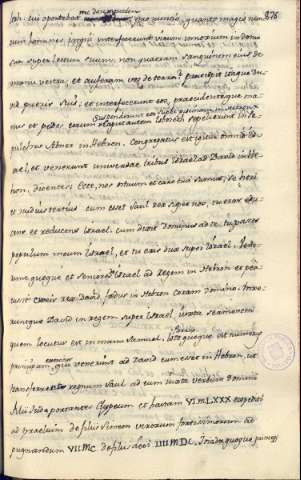 376
me dare mercedem
Isboseth. cui oportebat pro nuncio, quanto magis nunc
cum homines impii interfecerint virum innoxium in domo
sua super lectum suum, non quaeram sanguinem eius de
manu vestra, et auferam vos de terra? praecepit itaque Da
vid pueris suis, et interfecerunt eos, praecidentesque ma
nus et pedes eorum suspenderunt eos super piscinam in Hebron
caput autem Isboseth sepelierunt in se
pulchro Abner in Hebron. Congregatus est igitur omnis Isr
ael, et venerunt universae tribus Israel ad David in Heb
ron, dicentes Ecce, nos os tuum et caro tua sumus, sed heri
et nudius tertius cum esset Saul rex super nos, tu eras edu
cens et reducens Israel. cum dixit Dominus ad te, tu pasces
populum meum Israel, et tu eris dux super Israel. Vene
runt quoque et seniores Israel ad Regem in Hebron et per
cussit cum eis rex David foedus in Hebron coram domino. unxe
runtque David in regem super Israel, iuxta sermonem
quem locutus est in manu Samuel. iste quoque est numerus
principum exercitus qui venerunt ad David cum esset in Hebron, ut
transferrent regnum Saul ad eum iuxta verbum domini
filii Iuda portantes clypeum et hastam VI.M.LXXX expediti
ad praelium de filiis Simeon virorum fortissimorum ad
pugnandum VII.MC de filiis Levi IIII.M.DC. Ioiada quoque princeps